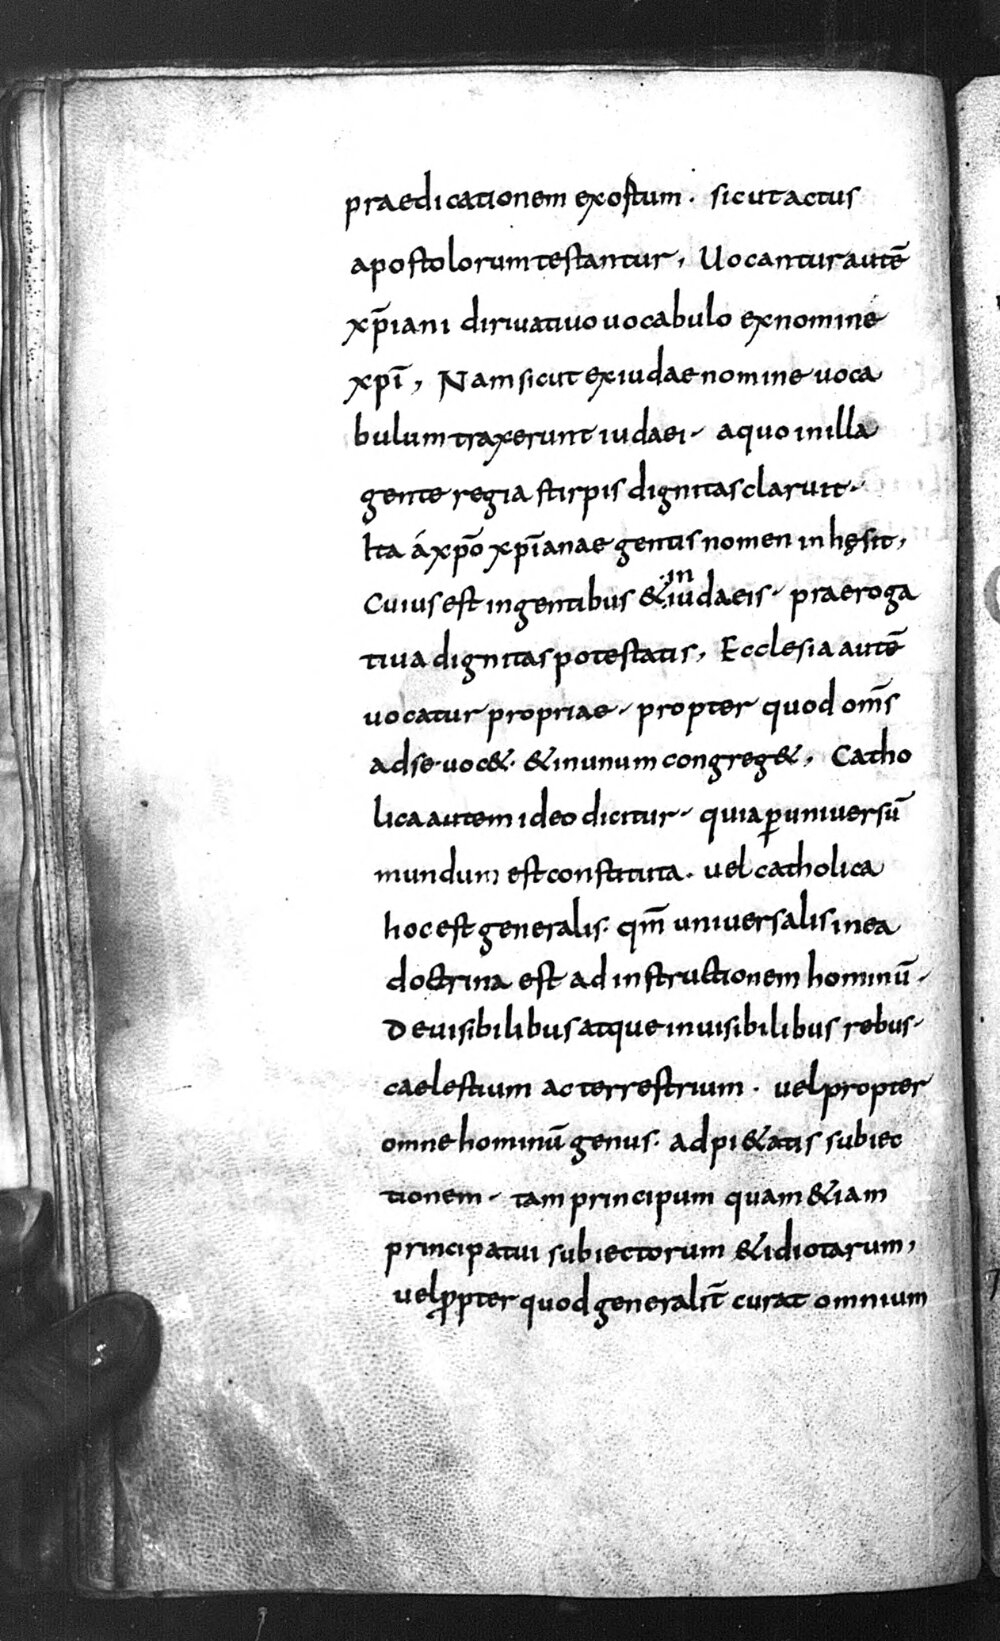 praedicationem exostum. sicut actus
apostolorum testantur, Uocantur autē
xp̄iani diriuatiuo uocabulo ex nomine
xpī, Nam sicut ex iudae nomine uoca
bulum traxerunt iudaei- a quo in illa
gente regia stirpis dignitas claruit-
Ita á xpō xpīanae gentis nomen inhęsit,
Cuius est in gentibus & in iudaeis- praeroga
tiua dignitas potestatis, Ecclesia autē
uocatur propriae- propter quod om̄s
ad se uoc&. & in unum congreg&, Catho
lica autem ideo dicitur- quia ꝑ uniuersū
mundum est constituta. uel catholica
hoc est generalis. qm̄ uniuersalis in ea
doctrina est ad instructionem hominū-
De uisibilibus atque inuisibilibus rebus-
caelestium ac terrestrium. uel propter
omne hominū genus. ad pi&atis subiec
tionem- tam principum quam &iam
principatui subiectorum & idiotarum,
uel ꝓpter quod generalit̄ curat omnium